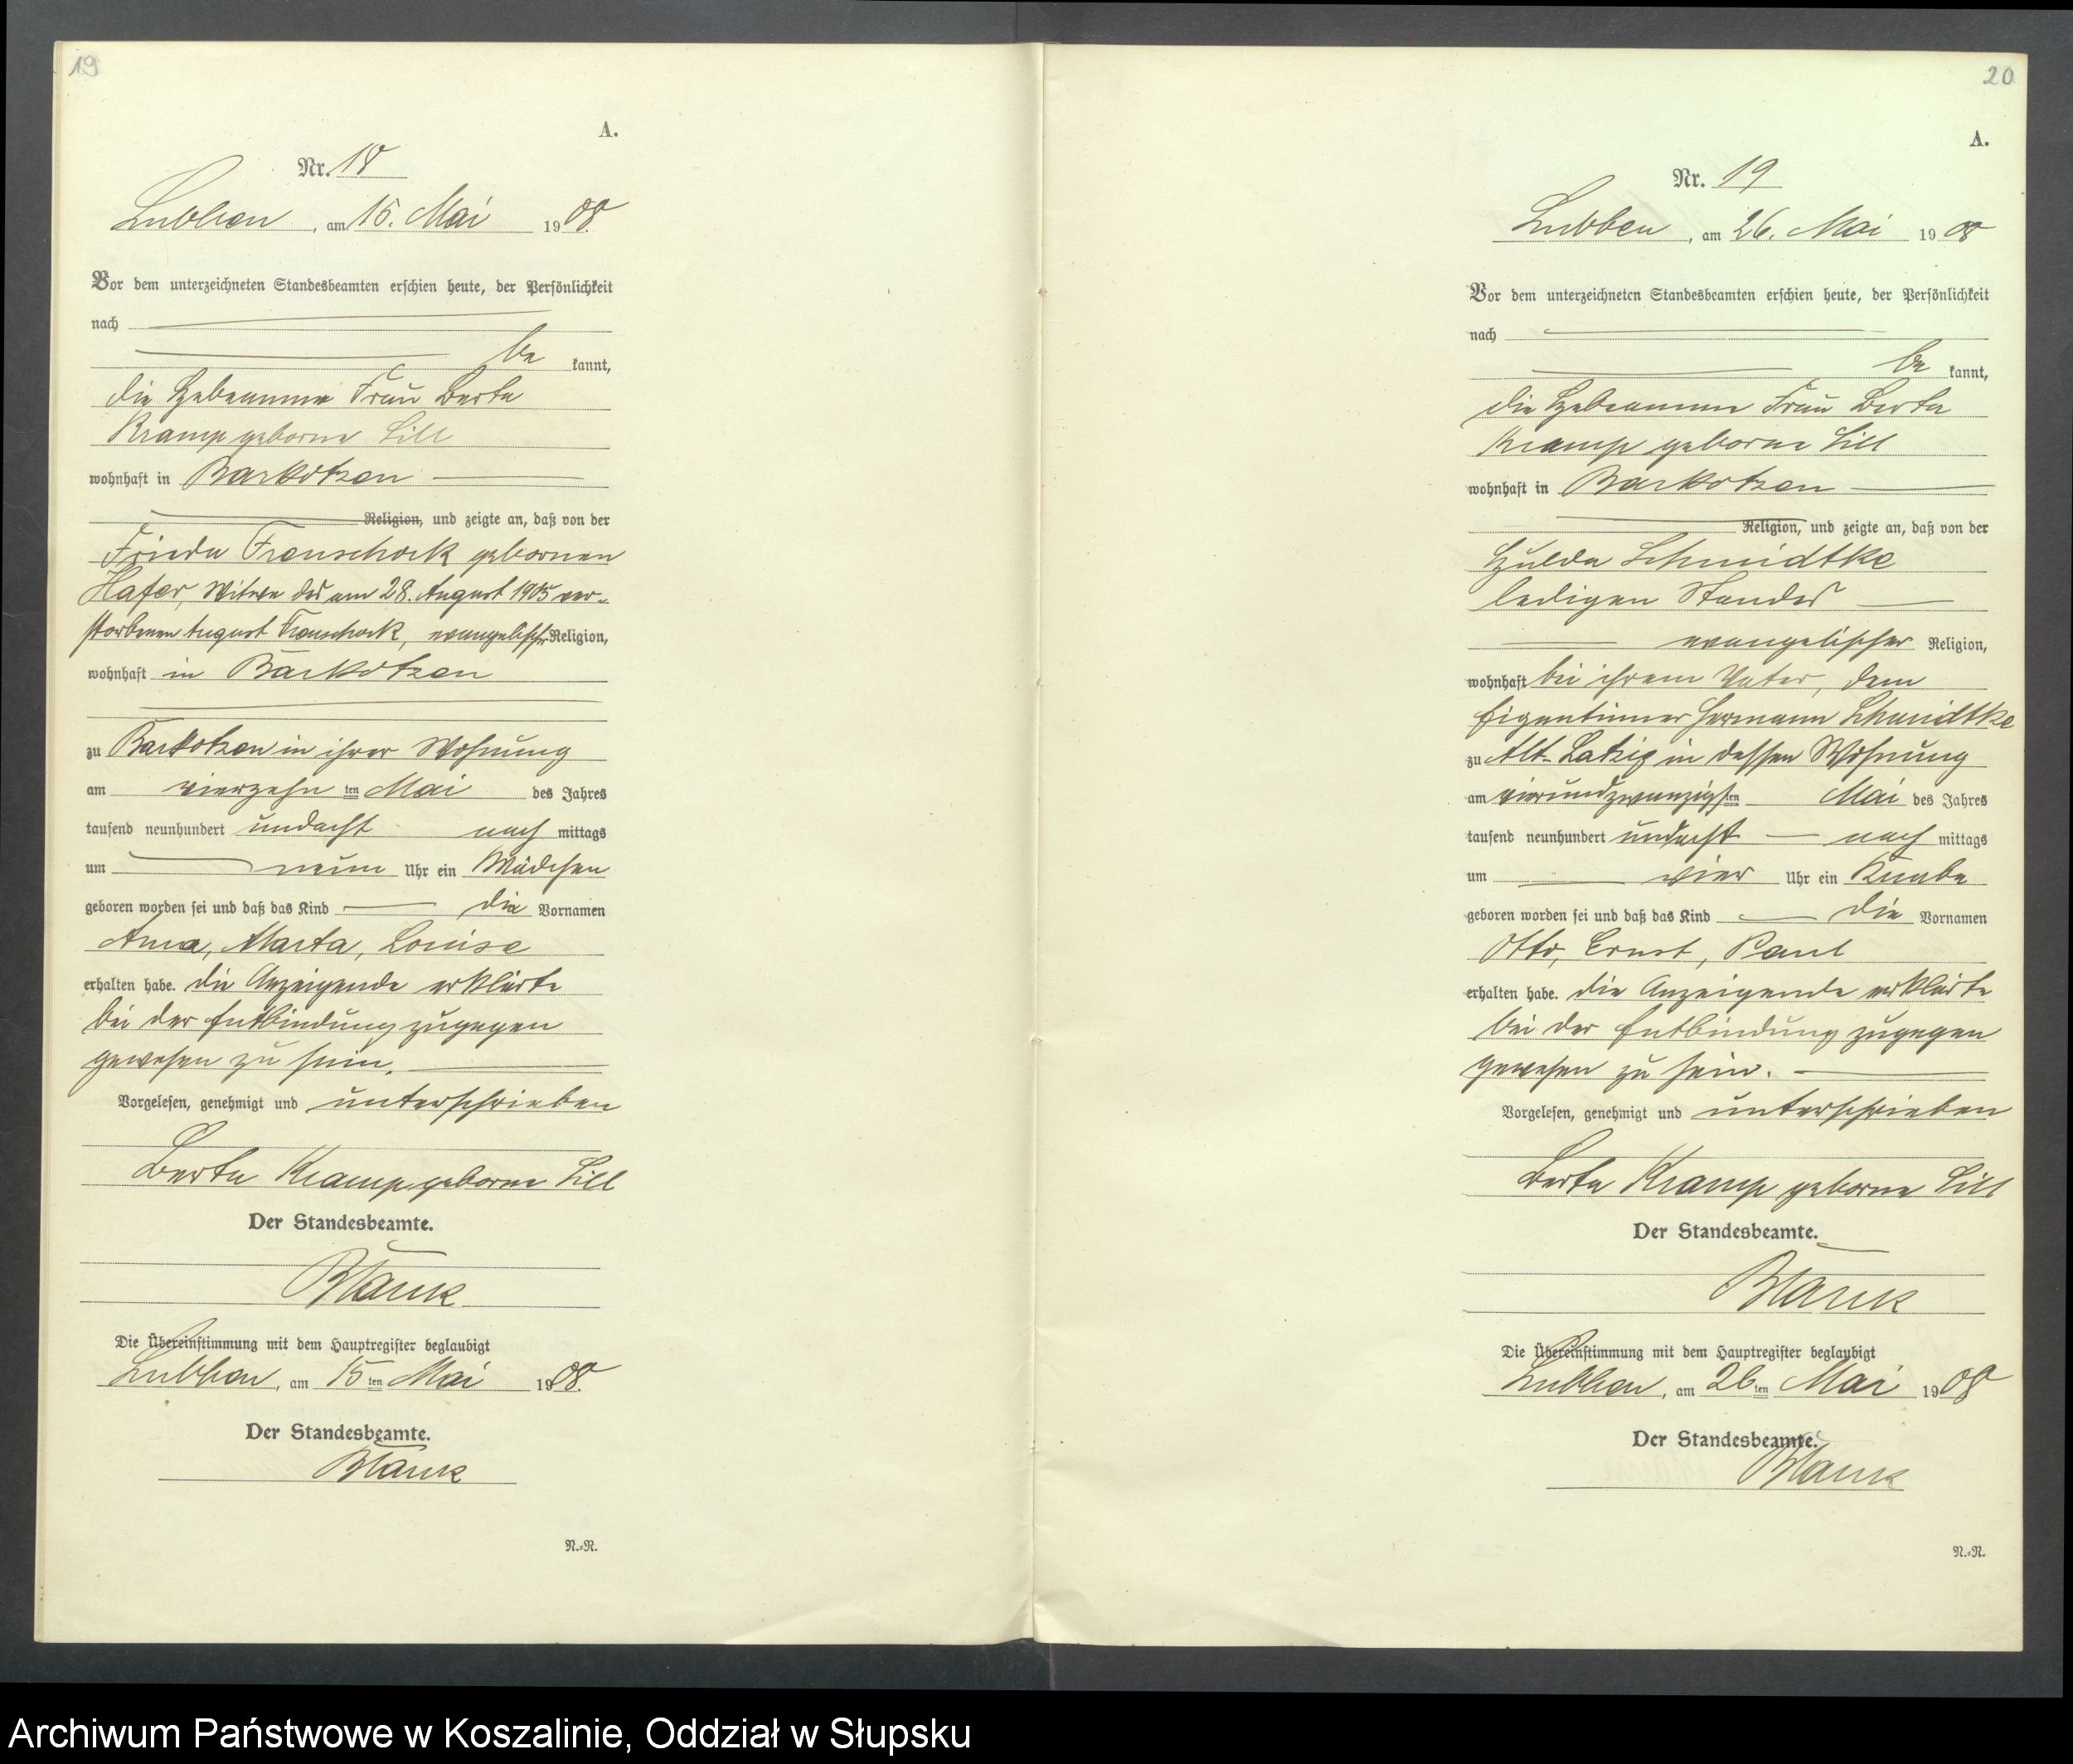 19
A.
Nr. 18
Lubben, am 15. Mai 1908.
Vor dem unterzeichneten Standesbeamten erschien heute, der Persönlichkeit
nach
be kannt,
die Hebeamme Frau Berta
Kramp geborne Lill
wohnhaft in Barkotzen
Religion, und zeigte an, daß von der
Frieda Franschock gebornen
Hafer, Witwe des am 28. August 1905 ver-
storbenen August Franschock, evangelischer Religion,
wohnhaft in Barkotzen
zu Barkotzen in ihrer Wohnung
am vierzehn ten Mai des Jahres
tausend neunhundert undacht nach mittags
um neun Uhr ein Mädchen
geboren worden sei und daß das Kind die Vornamen
Anna, Marta, Louise
erhalten habe. die Anzeigende erklärte
bei der Entbindung zugegen
gewesen zu sein.
Vorgelesen, genehmigt und unterschrieben
Berta Kramp geborne Lill
Der Standesbeamte.
Blank
Die Übereinstimmung mit dem Hauptregister beglaubigt
Lubben, am 15 ten Mai 1908.
Der Standesbeamte.
Blank
N.=N.
20
A.
Nr. 19
Lubben, am 26. Mai 1908
Vor dem unterzeichneten Standesbeamten erschien heute, der Persönlichkeit
nach
be kannt,
die Hebeamme Frau Berta
Kramp geborne Lill
wohnhaft in Barkotzen
Religion, und zeigte an, daß von der
Hulda Schmidtke
ledigen Standes
evangelischer Religion,
wohnhaft bei ihrem Vater, dem
Eigentümer Hermann Schmidtke
zu Alt-Latzig in dessen Wohnung
am vierundzwanzigsten Mai des Jahres
tausend neunhundert undacht nach mittags
um vier Uhr ein Knabe
geboren worden sei und daß das Kind die Vornamen
Otto, Ernst, Paul
erhalten habe. die Anzeigende erklärte
bei der Entbindung zugegen
gewesen zu sein.
Vorgelesen, genehmigt und unterschrieben
Berta Kramp geborne Lill
Der Standesbeamte.
Blank
Die Übereinstimmung mit dem Hauptregister beglaubigt
Lubben, am 26 ten Mai 1908
Der Standesbeamte.
Blank
N.=N.
Archiwum Państwowe w Koszalinie, Oddział w Słupsku